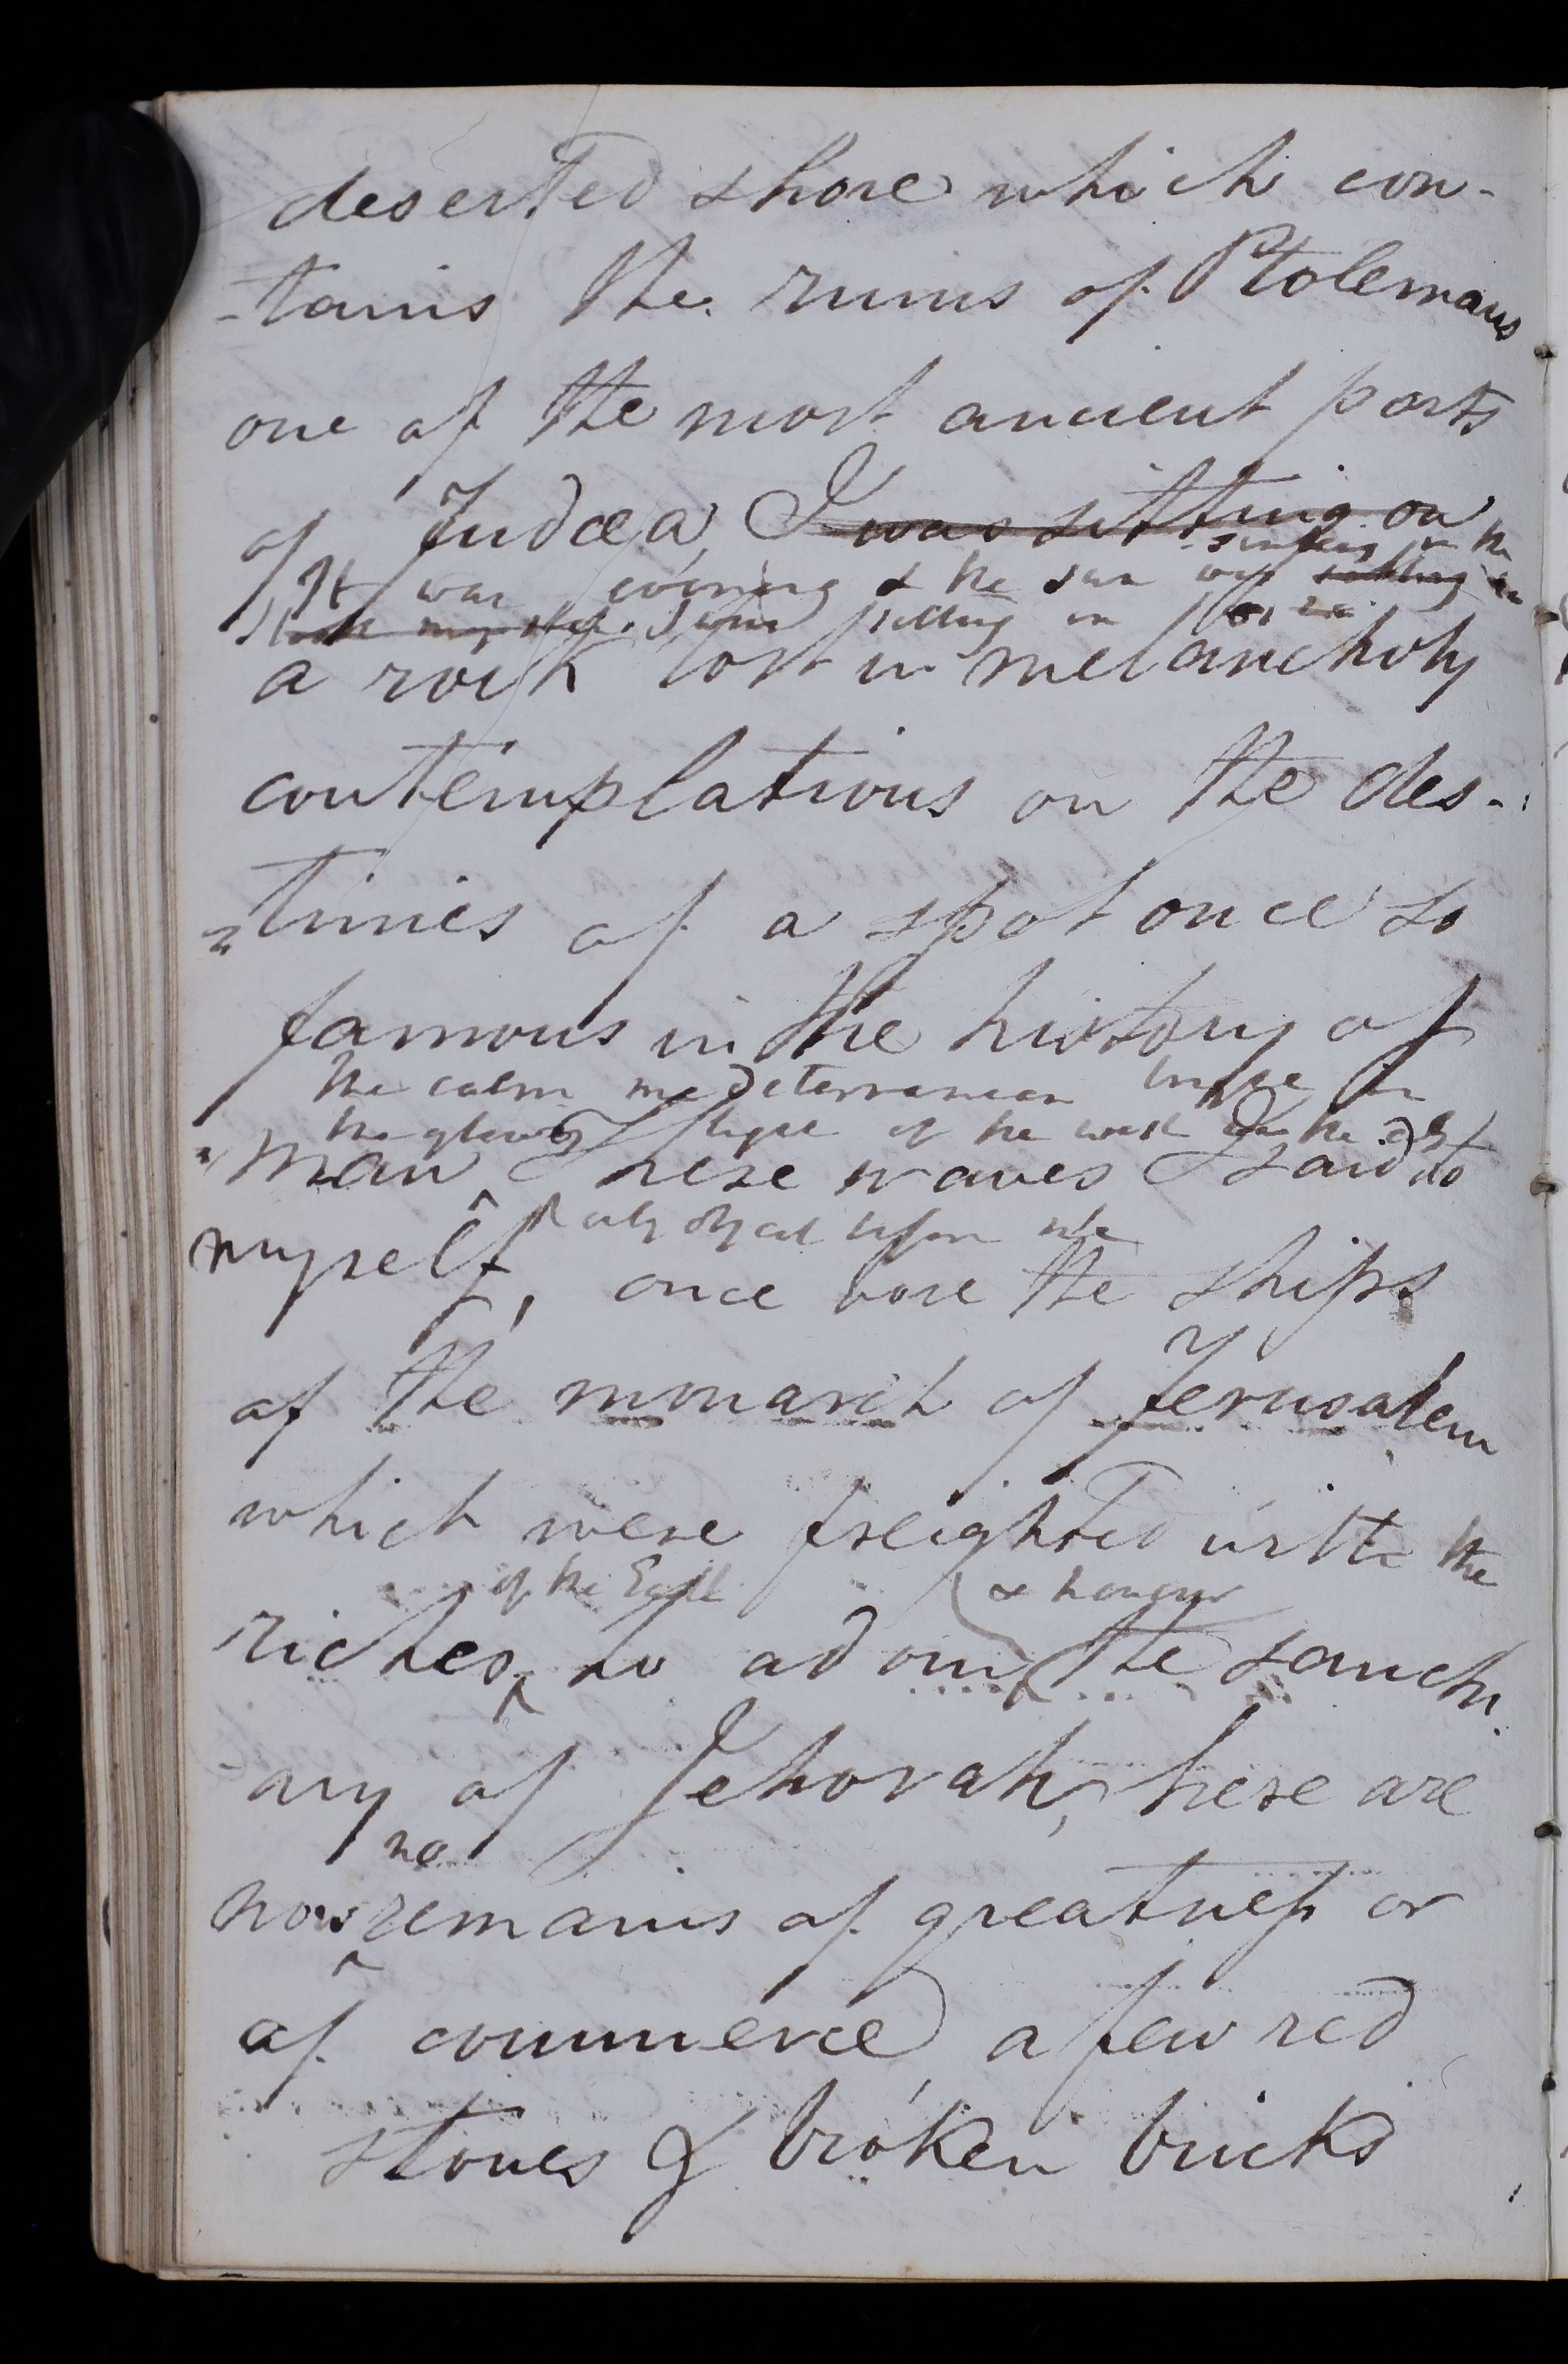 deserted shore which con-
-tains the ruins of Ptolemais
one of the most ancient ports
of Judæa, I was sitting on
It was evening & the sun was sinking in the
I took my step. I was sitting on
a rock lost in melancholy
contemplations on the des-
-tinies of a spot once so
famous in the history of
the calm mediterranean bright in
the glowing light of the west was the
man. These waves I said to
only object before me
myself, once bore the ships
of the monarch of Jerusalem
which were freighted with the
of the East & honour
riches to adorn the sanctu
-ary of Jehovah, here are
no
now remains of greatness or
of commerce, a few red
stones & broken bricks